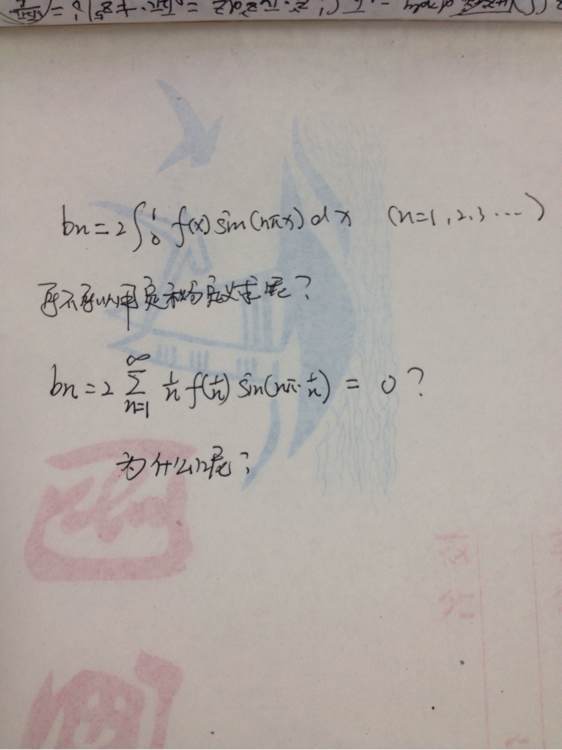 bn = 2∫₀¹ f(x) sin(nπx) dx (n=1,2,3…)
可不可以用定积分定义求呢?
bn = 2 ∑_{n=1}^{∞} 1/n f(1/n) sin(nπ·1/n) = 0?
为什么呢?